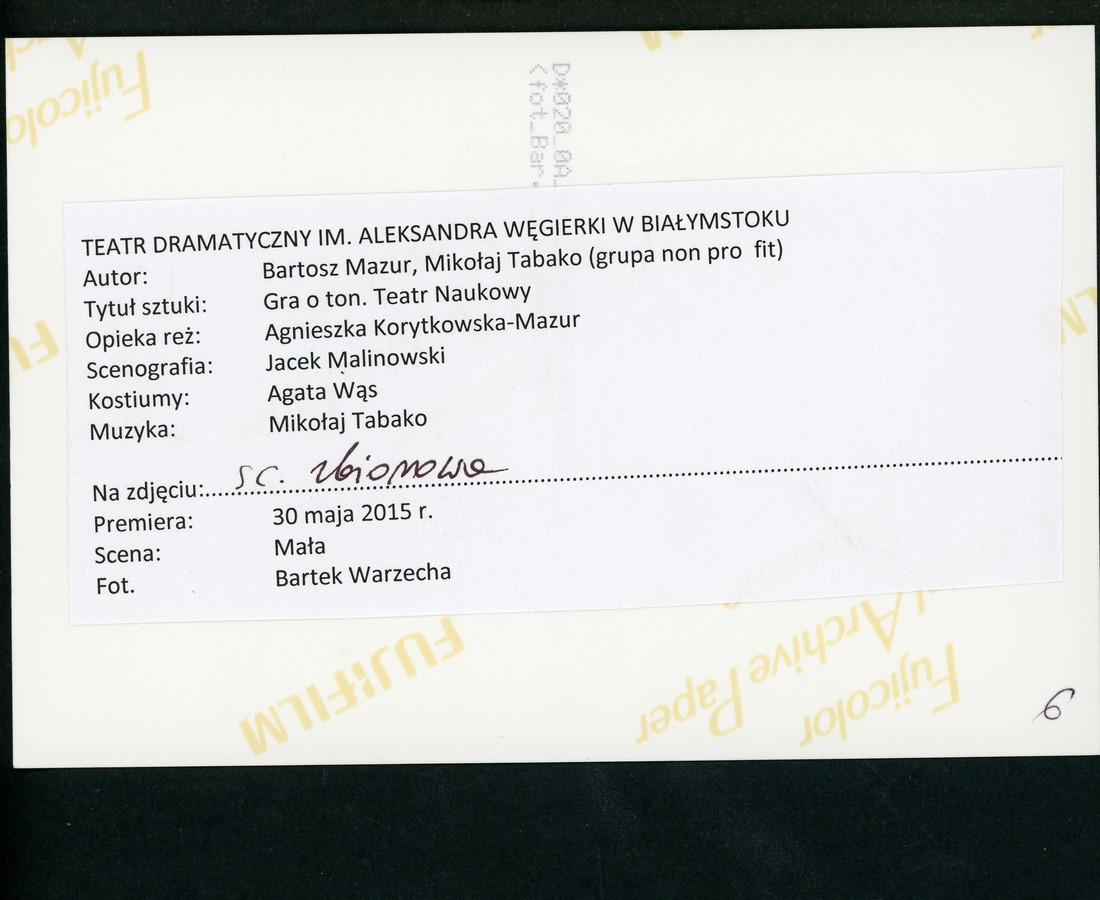 Fujicolor
D*020_0A.
<fot_Bar.
TEATR DRAMATYCZNY IM. ALEKSANDRA WĘGIERKI W BIAŁYMSTOKU
Autor: Bartosz Mazur, Mikołaj Tabako (grupa non pro fit)
Tytuł sztuki: Gra o ton. Teatr Naukowy
Opieka reż: Agnieszka Korytkowska-Mazur
Scenografia: Jacek Malinowski
Kostiumy: Agata Wąs
Muzyka: Mikołaj Tabako
Na zdjęciu: sc. zbiorowa
Premiera: 30 maja 2015 r.
Scena: Mała
Fot. Bartek Warzecha
FUJIFILM
Fujicolor
Crystal Archive Paper
6